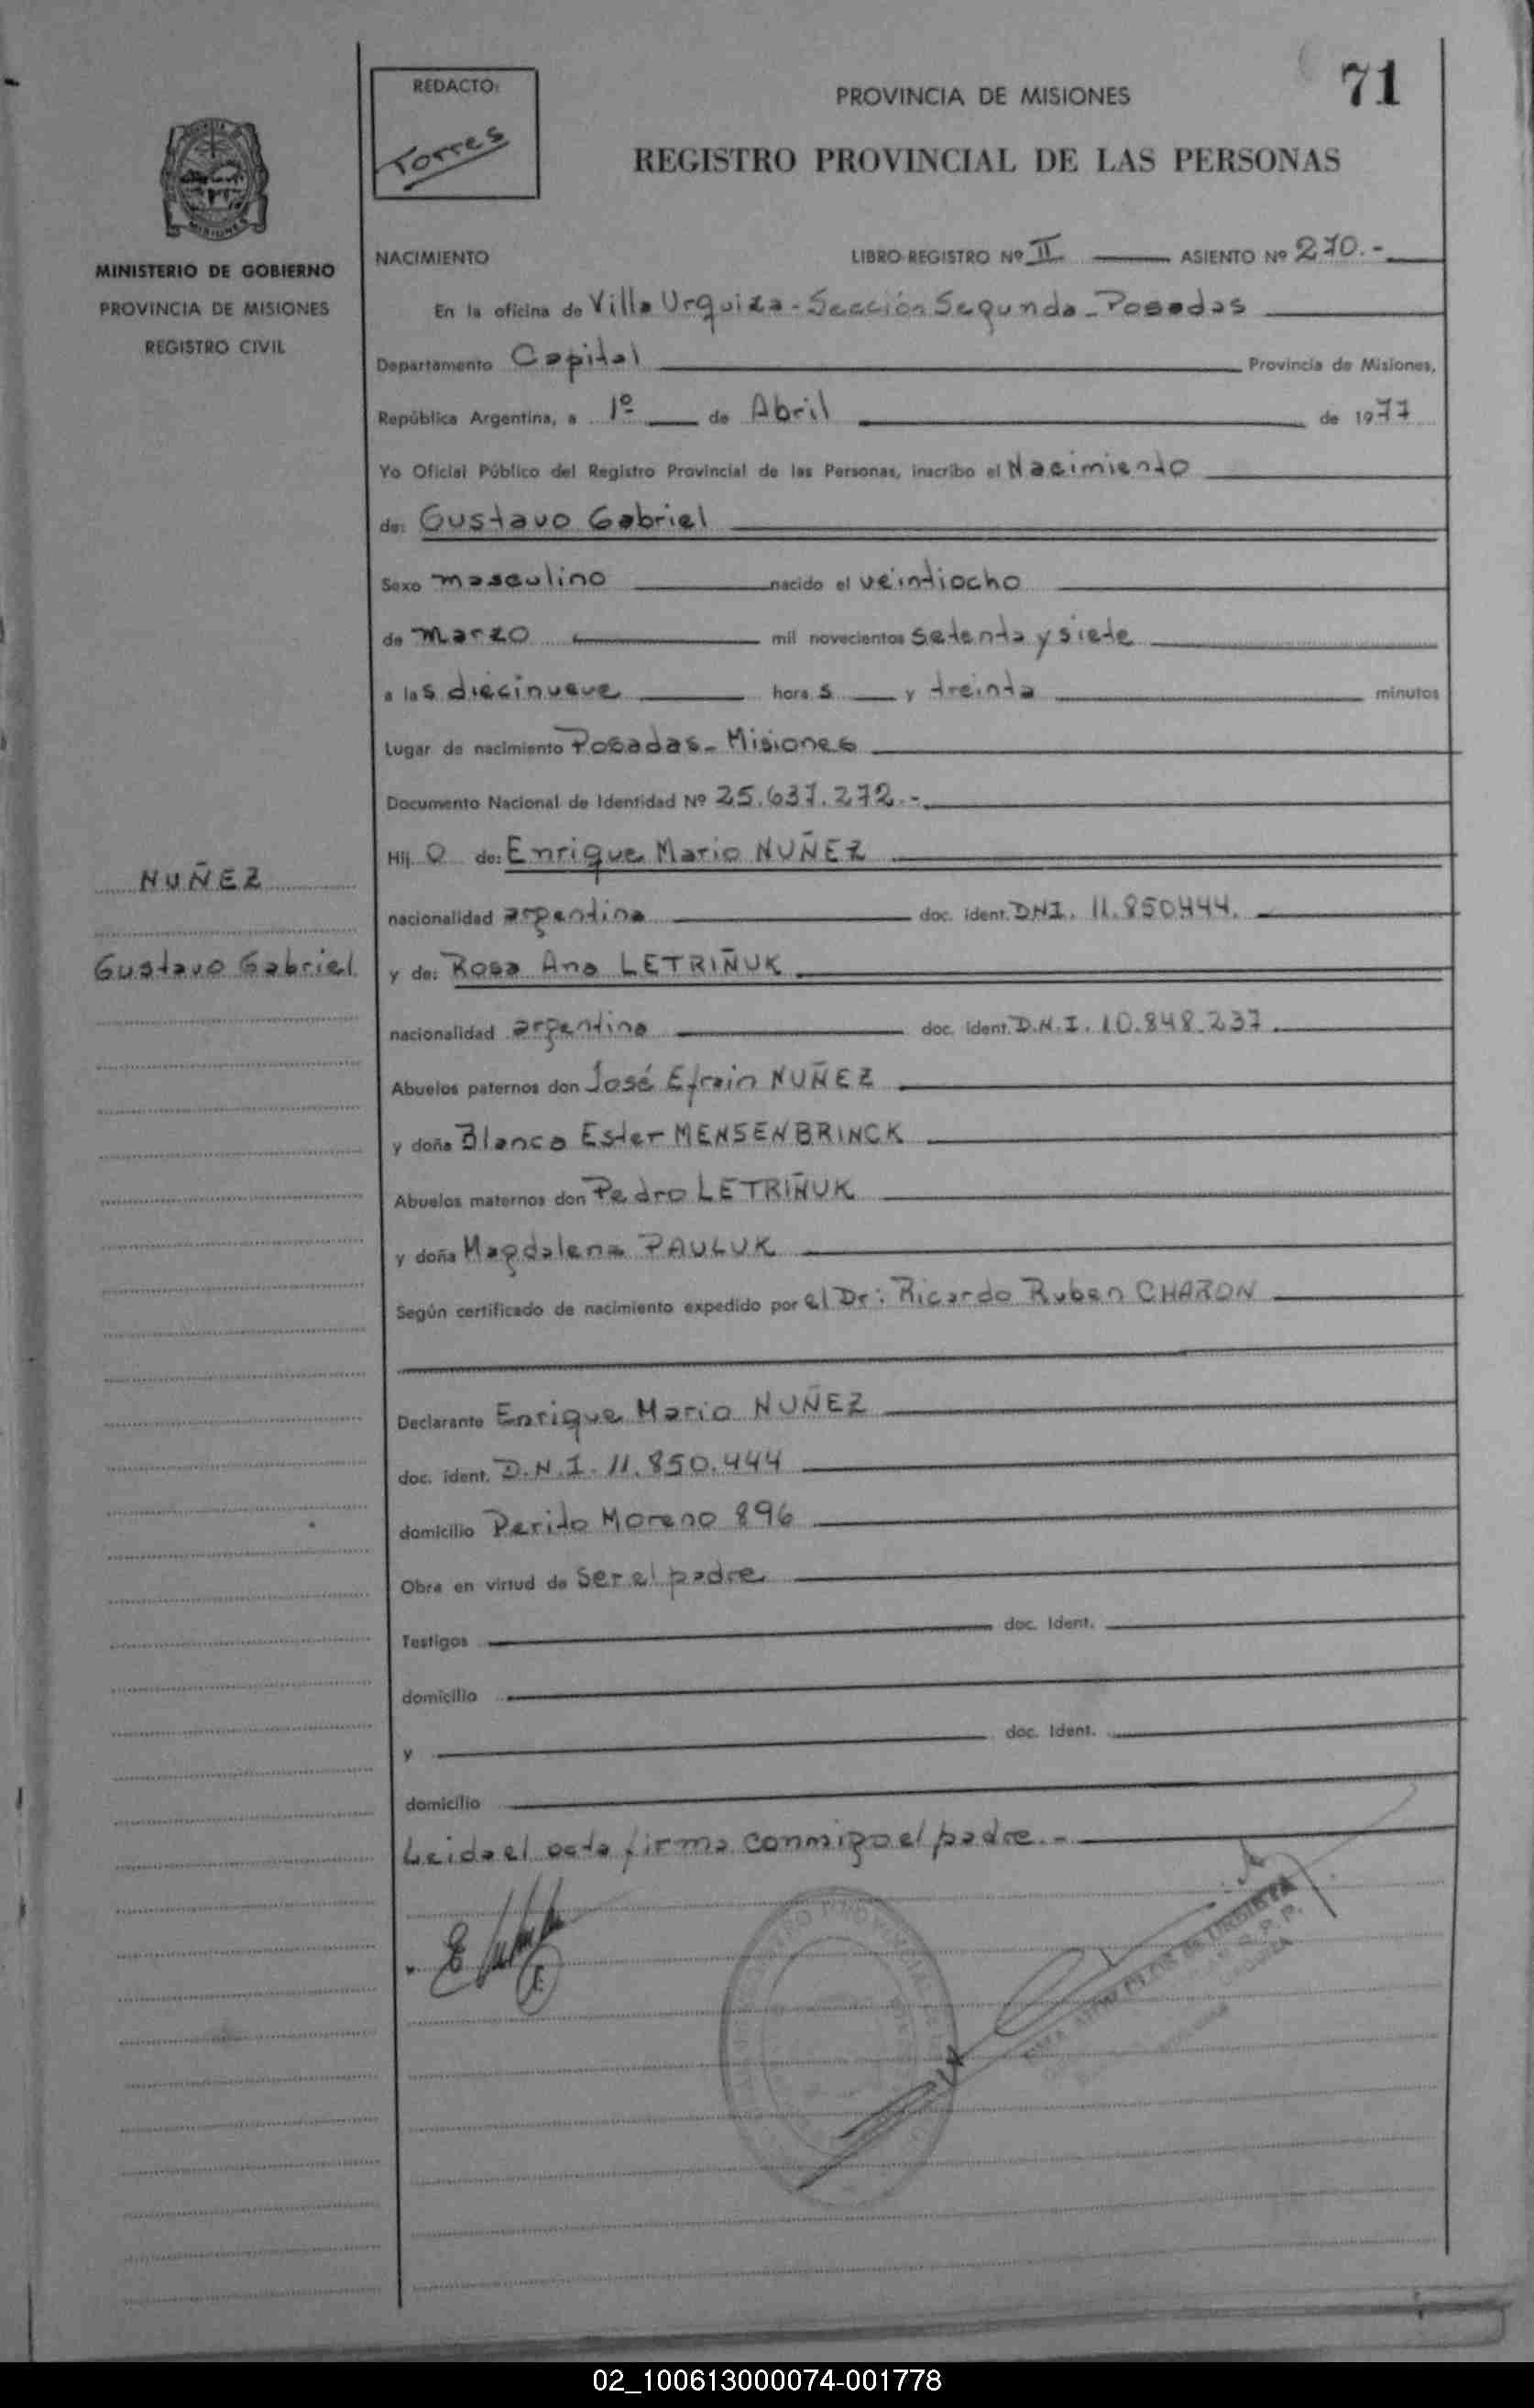 71
REDACTO:
Torres
PROVINCIA DE MISIONES
REGISTRO PROVINCIAL DE LAS PERSONAS
MISIONES
MINISTERIO DE GOBIERNO
PROVINCIA DE MISIONES
REGISTRO CIVIL
NUÑEZ
Gustavo Gabriel
NACIMIENTO LIBRO REGISTRO Nº II ASIENTO Nº 270.-
En la oficina de Villa Urquiza - Sección Segunda - Posadas
Departamento Capital Provincia de Misiones,
República Argentina, a 1º de Abril de 1977
Yo Oficial Público del Registro Provincial de las Personas, inscribo el Nacimiento
de: Gustavo Gabriel
Sexo masculino nacido el veintiocho
de marzo mil novecientos setenta y siete
a las diecinueve horas y treinta minutos
Lugar de nacimiento Posadas - Misiones
Documento Nacional de Identidad Nº 25.637.272.-
Hijo de: Enrique Mario NUÑEZ
nacionalidad argentina doc. ident. DNI. 11.850444.
y de: Rosa Ana LETRIÑUK
nacionalidad argentina doc. ident. D.N.I. 10.848.237
Abuelos paternos don José Efrain NUÑEZ
y doña Blanca Ester MENSENBRINCK
Abuelos maternos don Pedro LETRIÑUK
y doña Magdalena PAULUK
Según certificado de nacimiento expedido por el Dr: Ricardo Ruben CHARON
Declarante Enrique Mario NUÑEZ
doc. ident. D.N.I. 11.850.444
domicilio Perito Moreno 896
Obra en virtud de ser el padre
Testigos doc. Ident.
domicilio
y doc. Ident.
domicilio
Leida el acta firma conmigo el padre.-
02_100613000074-001778